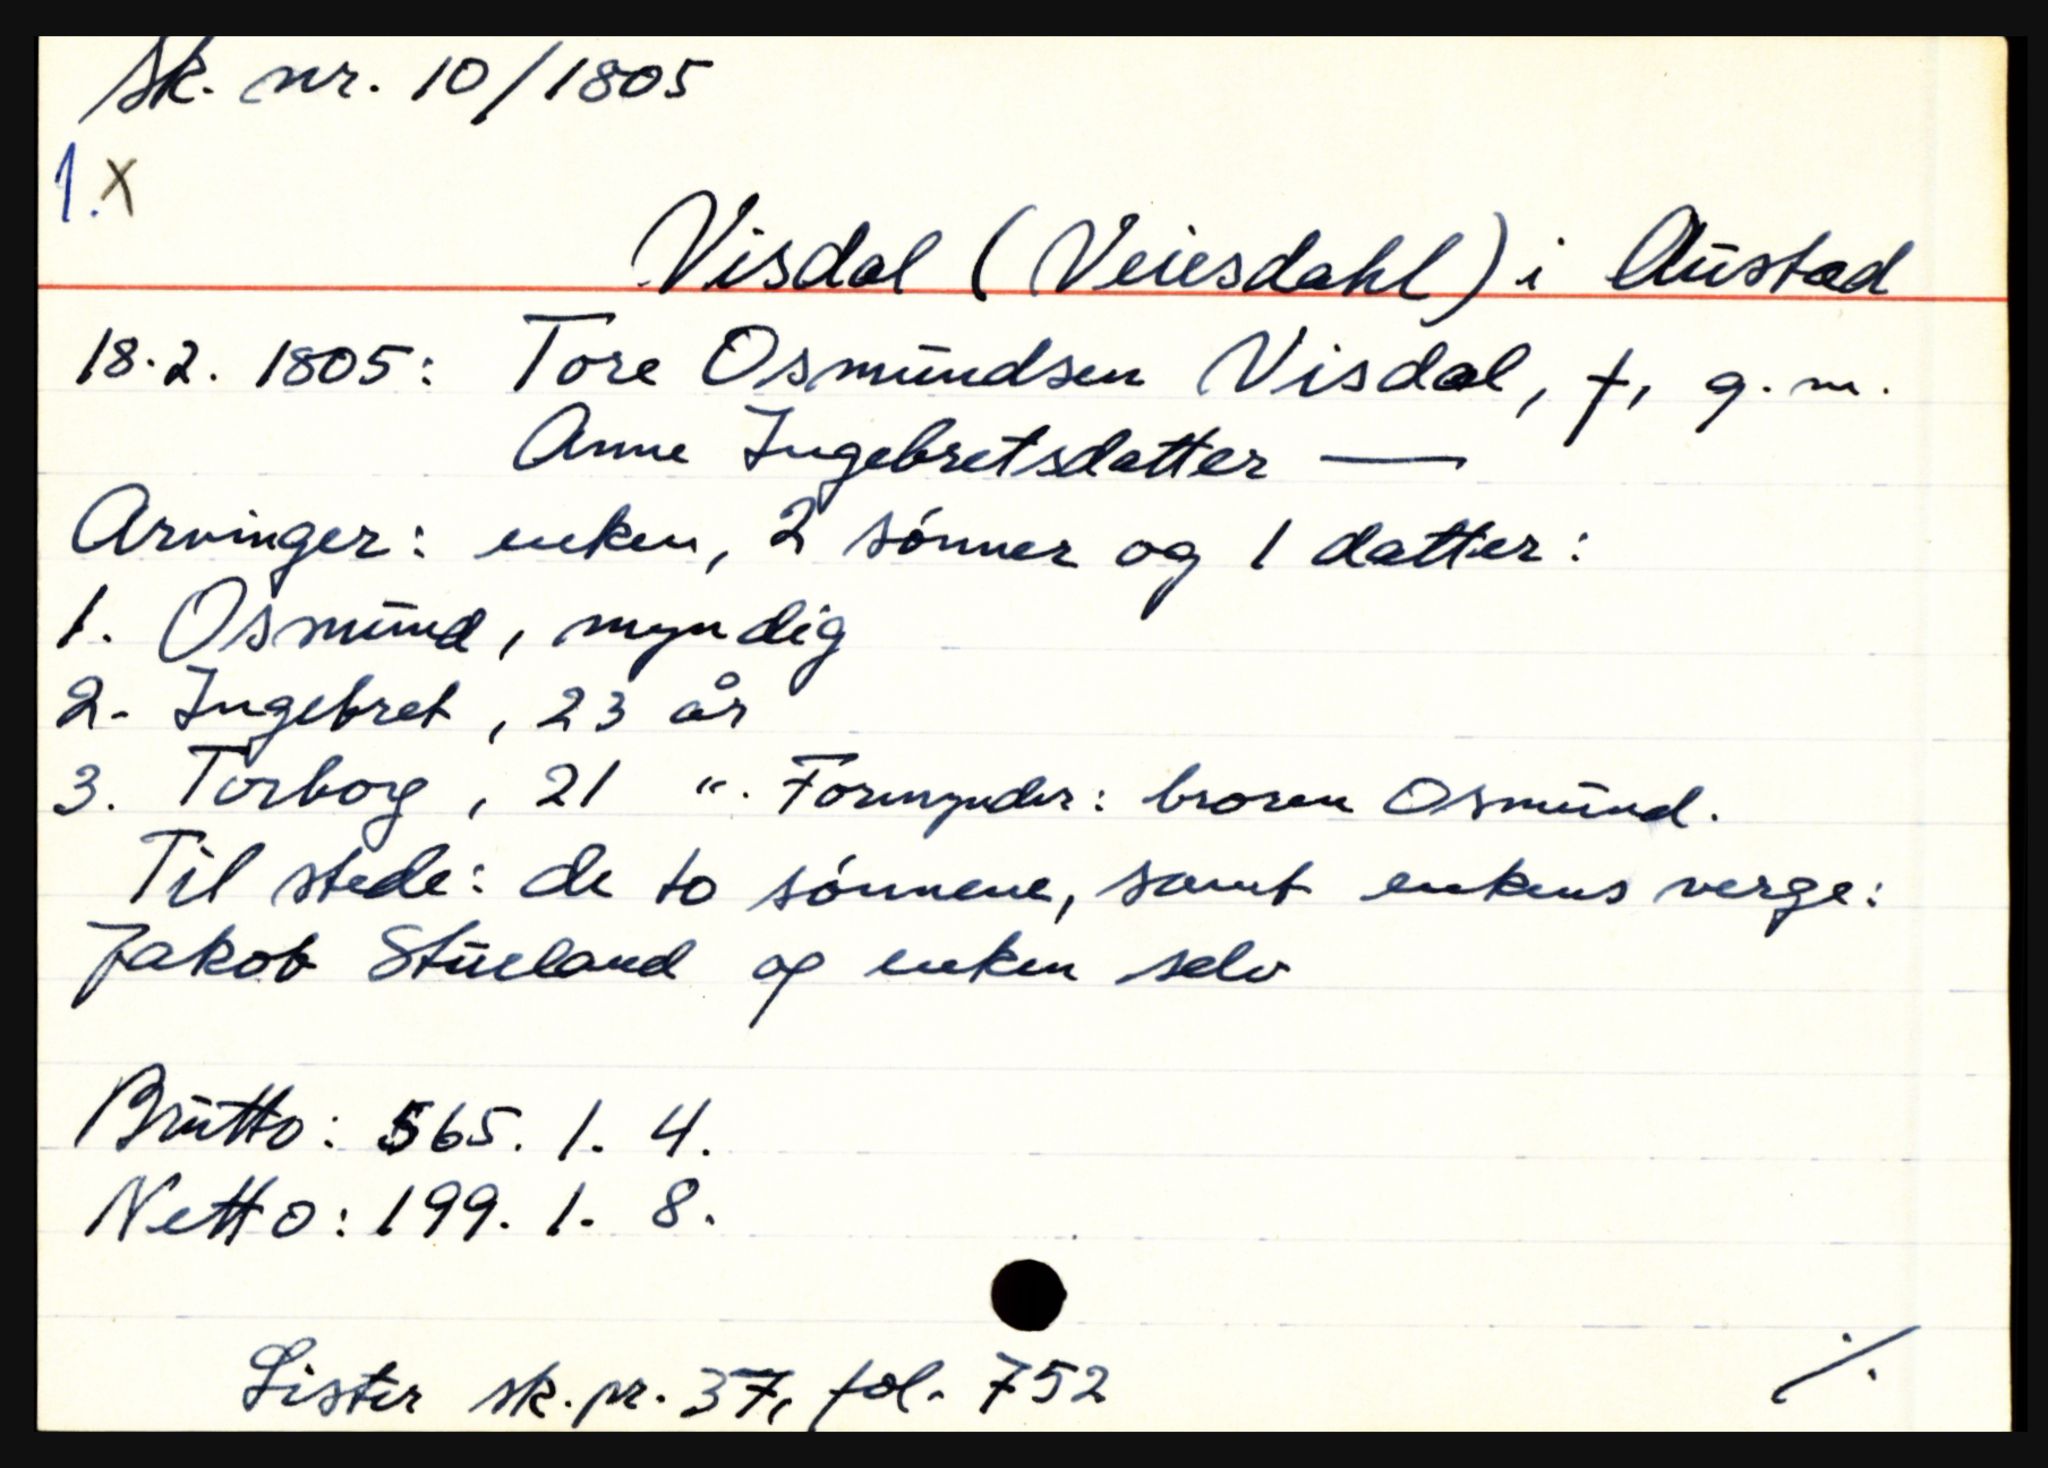 Sk. nr. 10/1805
1. X
Visdal (Veiesdahl) i Austad
18.2. 1805: Tore Osmundsen Visdal, †, g. m.
Anne Ingebretsdatter —
Arvinger: enken, 2 sønner og 1 datter:
1. Osmund, myndig
2. Ingebret, 23 år
3. Torborg, 21 ". Formynder: broren Osmund.
Til stede: de to sønnene, samt enkens verge:
Jakob Stueland og enken selv
Brutto: 565. 1. 4.
Netto: 199. 1. 8.
Lister sk.pr. 37, fol. 752
./.